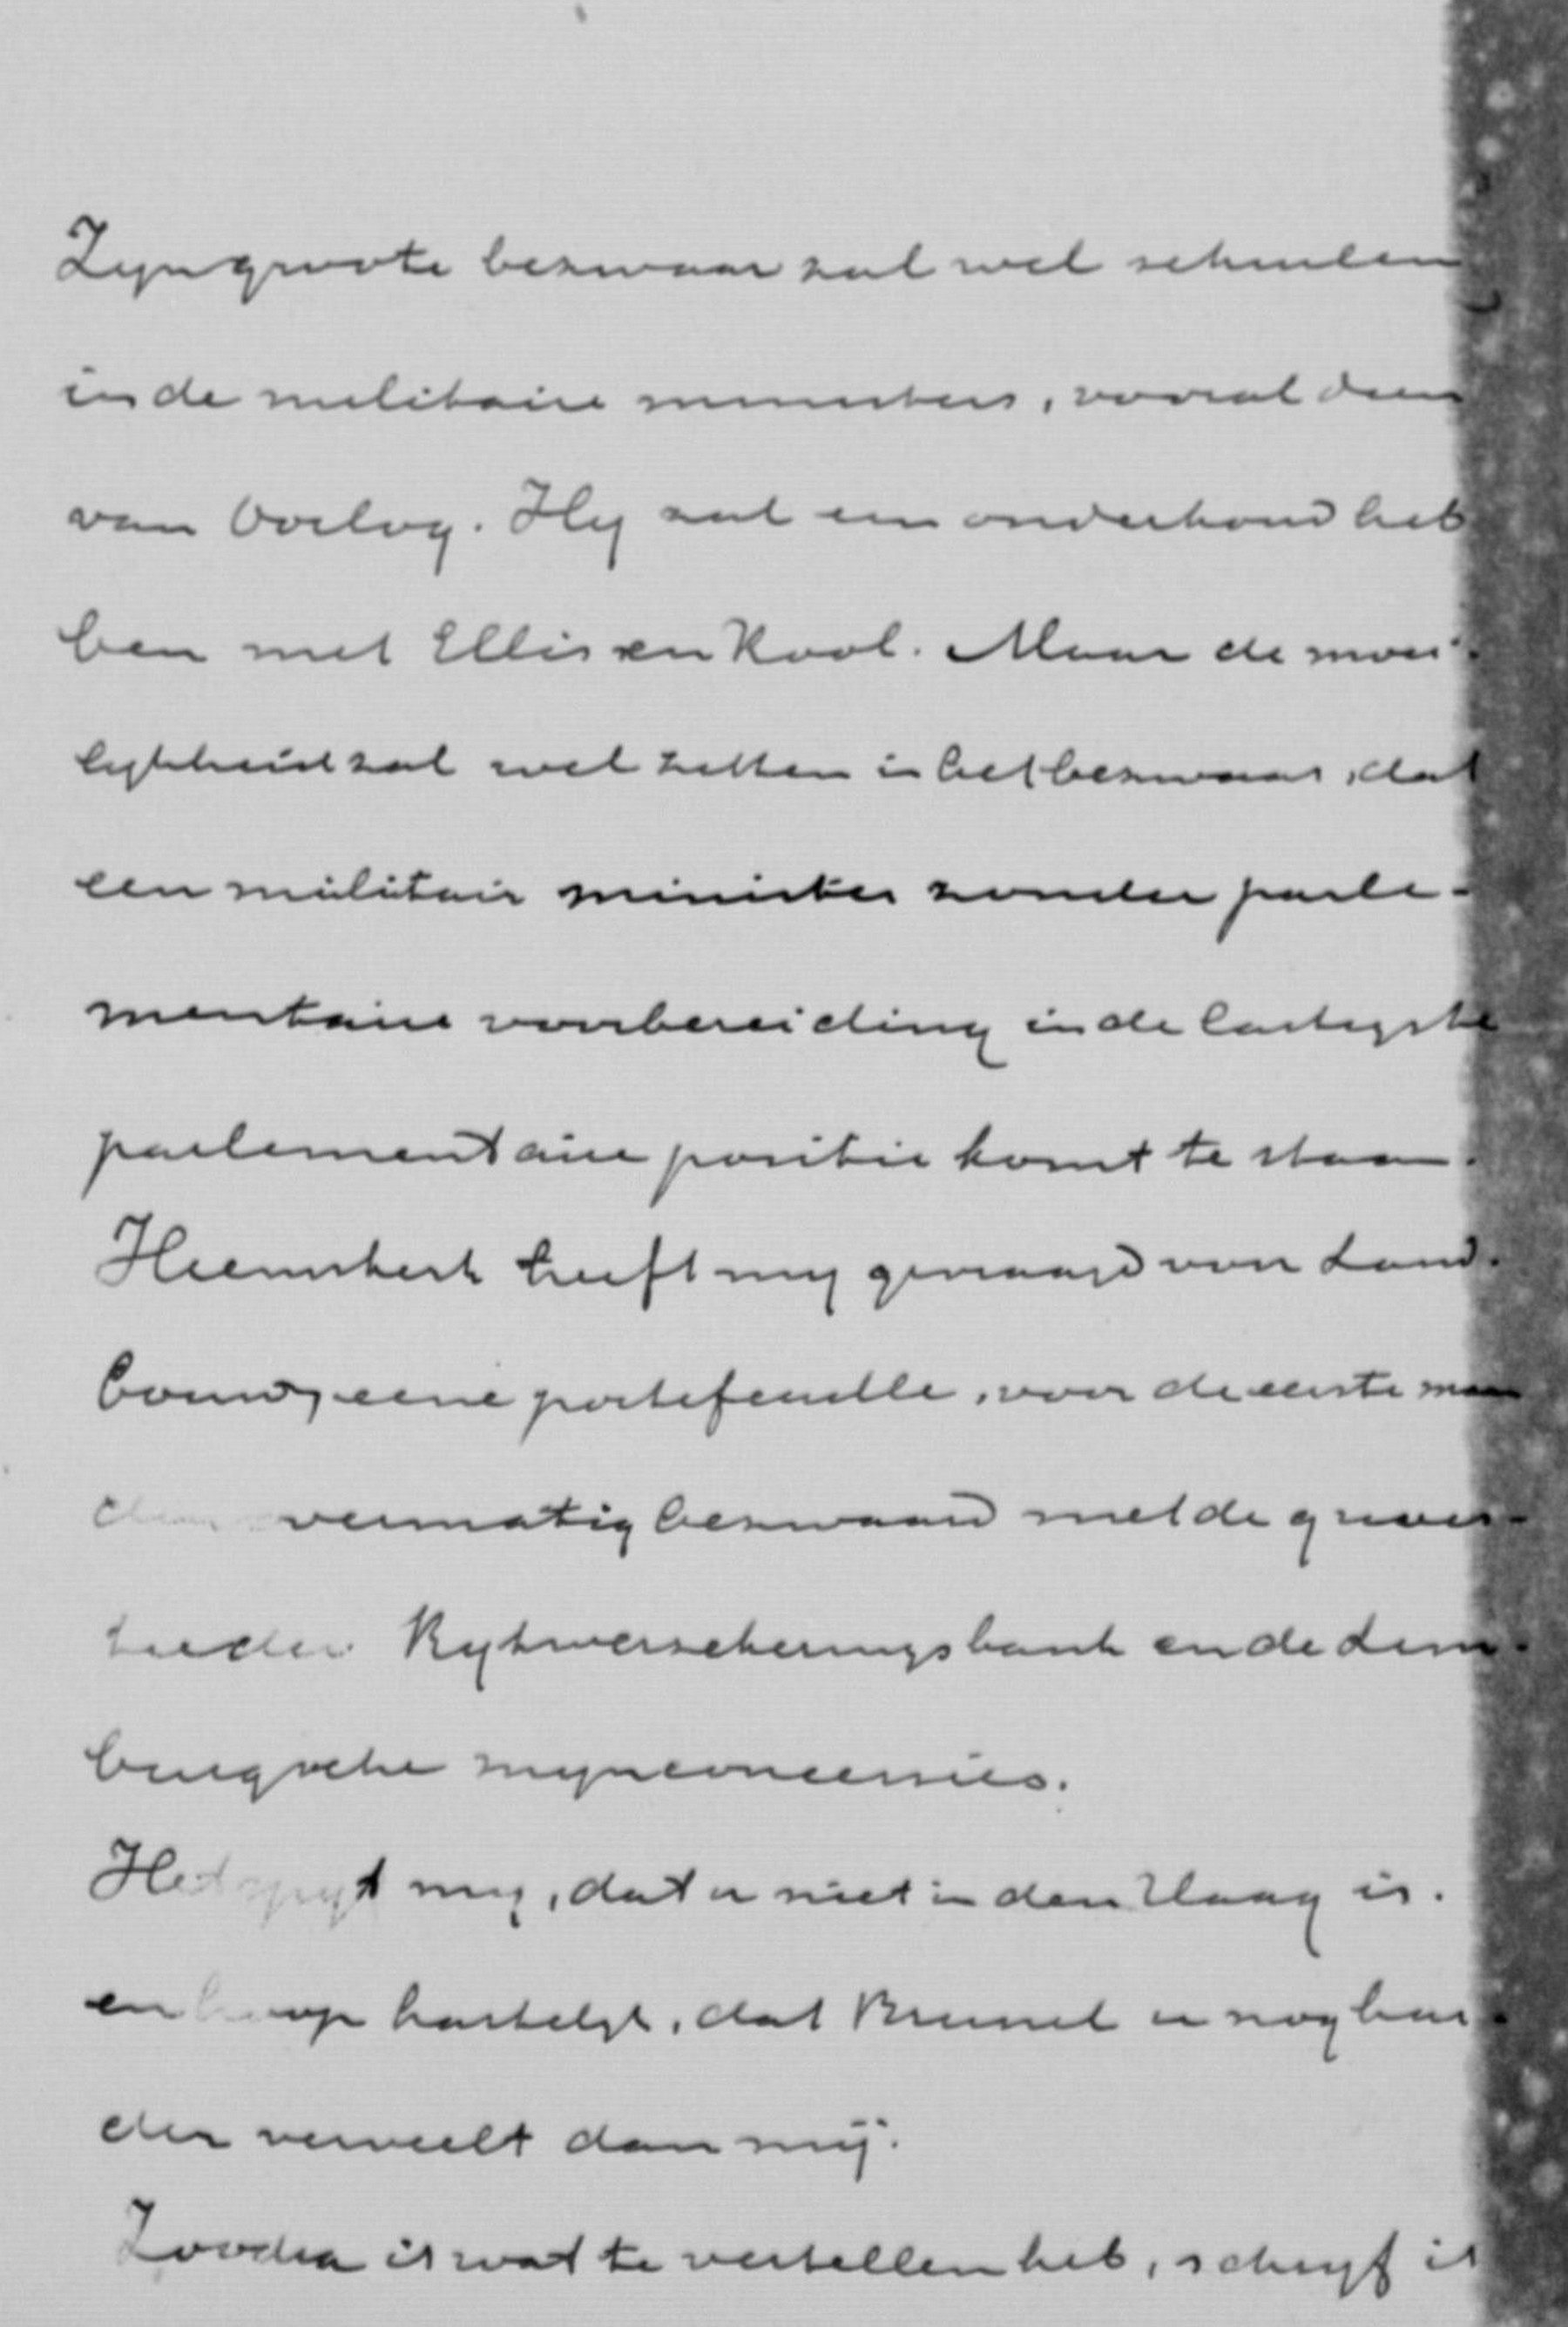 Zyn groote bezwaar zal wel schuilen
in de militaire ministers, vooral dien
van Oorlog. Hy zal een onderhoud heb
ben met Ellis en Kool. Maar de moei-
lykheid zal wel zitten in het bezwaar, dat
een militair minister zonder parle-
mentaire voorbereiding in de lastigste
parlementaire positie komt te staan.
Heemskerk heeft my gevraagd voor Land-
bouw, eene portefeuille, voor de eerste maan
den overmatig bezwaard met de
der Ryksverzekeringsbank en de Lim-
burgsche mynconcessies.
Het spyt my, dat u niet in den Haag is.
en hoop hartelyk, dat Brussel u nog ban-
der verveelt dan mij.
Zoodra ik wat te vertellen heb, schryf ik